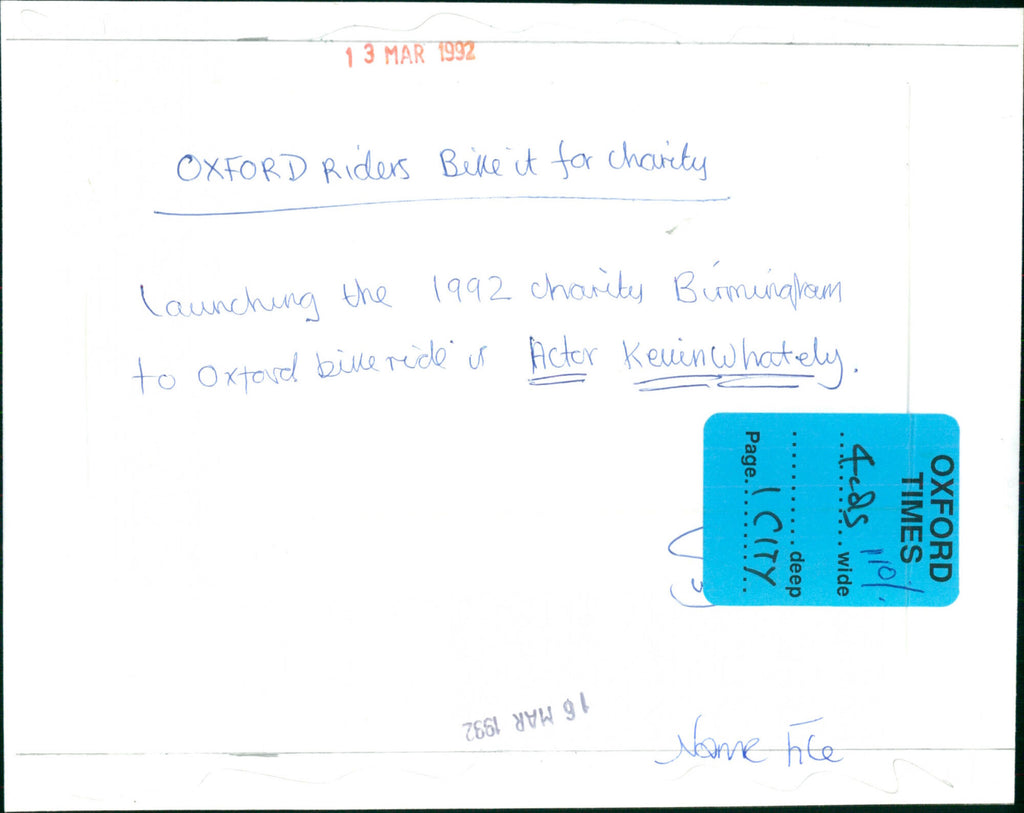 13 MAR 1992
OXFORD Riders Bike it for charity
Launching the 1992 charity Birmingham
to Oxford bike ride is Actor Kevin Whately.
OXFORD
TIMES
110%
4cds wide
deep
Page 1 CITY
16 MAR 1992
Name File